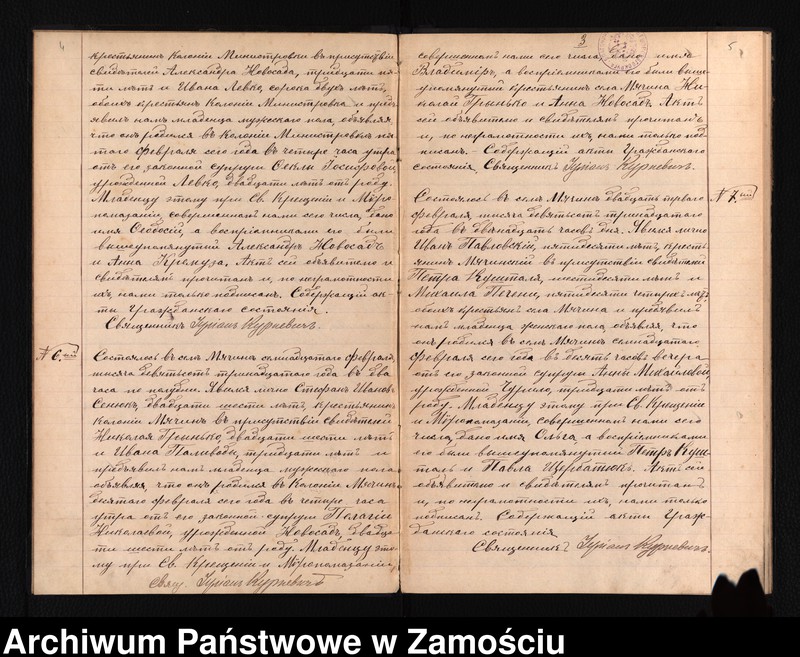 4
крестьянинъ колоніи Министровки въ присутствіи
свидѣтелей Александра Новосада, тридцати пя-
ти лѣтъ и Ивана Левко, сорока двухъ лѣтъ,
обоихъ крестьянъ колоніи Министровка и предъ
явилъ намъ младенца мужескаго пола, объявляя,
что онъ родился въ колоніи Министровкѣ пя-
таго февраля сего года въ четыре часа утра
отъ его законной супруги Ѳеклы Іосифовой,
урожденной Левко, двадцати лѣтъ отъ роду.
Младенцу этому при Св. Крещеніи и Мѵро-
помазаніи, совершенномъ нами сего числа, дано
имя Ѳеодосій, а воспріемниками его были
вышеупомянутый Александръ Новосадъ
и Анна Кремуза. Актъ сей объявителю и
свидѣтелямъ прочитанъ и, по неграмотности
ихъ, нами только подписанъ. Содержащій ак-
ты Гражданскаго состоянія.
Священникъ Іуліанъ Курпевичъ.
№ 6.
Состоялось въ селѣ Мячинѣ семнадцатаго февраля,
тысяча девятьсотъ тринадцатаго года въ два
часа по полудни. Явился лично Стефанъ Ивановъ
Сенюкъ, двадцати шести лѣтъ, крестьянинъ
колоніи Мячинъ въ присутствіи свидѣтелей
Николая Гринько, двадцати шести лѣтъ
и Ивана Паливоды, тридцати лѣтъ и
предъявилъ намъ младенца мужескаго пола
объявляя, что онъ родился въ колоніи Мячинъ
десятаго февраля сего года въ четыре часа
утра отъ его законной супруги Пелагіи
Николаевой, урожденной Новосадъ, двадца-
ти шести лѣтъ отъ роду. Младенцу это-
му при Св. Крещеніи и Мѵропомазаніи,
Свящ. Іуліанъ Курпевичъ
3
5
совершенномъ нами сего числа, дано имя
Владиміръ, а воспріемниками его были выше
упомянутый крестьянинъ села Мячина Ни-
колай Гринько и Анна Новосадъ. Актъ
сей объявителю и свидѣтелямъ прочитанъ
и, по неграмотности ихъ, нами только под-
писанъ. Содержащій акты Гражданскаго
состоянія. Священникъ Іуліанъ Курпевичъ.
№ 7.
Состоялось въ селѣ Мячинѣ двадцать перваго
февраля, тысяча девятьсотъ тринадцатаго
года въ двѣнадцать часовъ дня. Явился лично
Иванъ Павловскій, пятидесяти лѣтъ, кресть-
янинъ Мячинскій въ присутствіи свидѣтелей
Петра Кушталя, шестидесяти лѣтъ и
Михаила Печени, пятидесяти четырехъ лѣтъ
обоихъ крестьянъ села Мячина и предъявилъ
намъ младенца женскаго пола объявляя, что
онъ родился въ селѣ Мячинѣ семнадцатаго
февраля сего года въ десять часовъ вечера
отъ его законной супруги Анны Михайловой,
урожденной Чурило, тридцати лѣтъ отъ
роду. Младенцу этому при Св. Крещеніи
и Мѵропомазаніи, совершенномъ нами сего
числа, дано имя Ольга, а воспріемниками
его были вышеупомянутый Петръ Куш-
таль и Павла Щербатюкъ. Актъ сей
объявителю и свидѣтелямъ прочитанъ
и, по неграмотности ихъ, нами только
подписанъ. Содержащій акты Граж-
данскаго состоянія
Священникъ Іуліанъ Курпевичъ.
Archiwum Państwowe w Zamościu